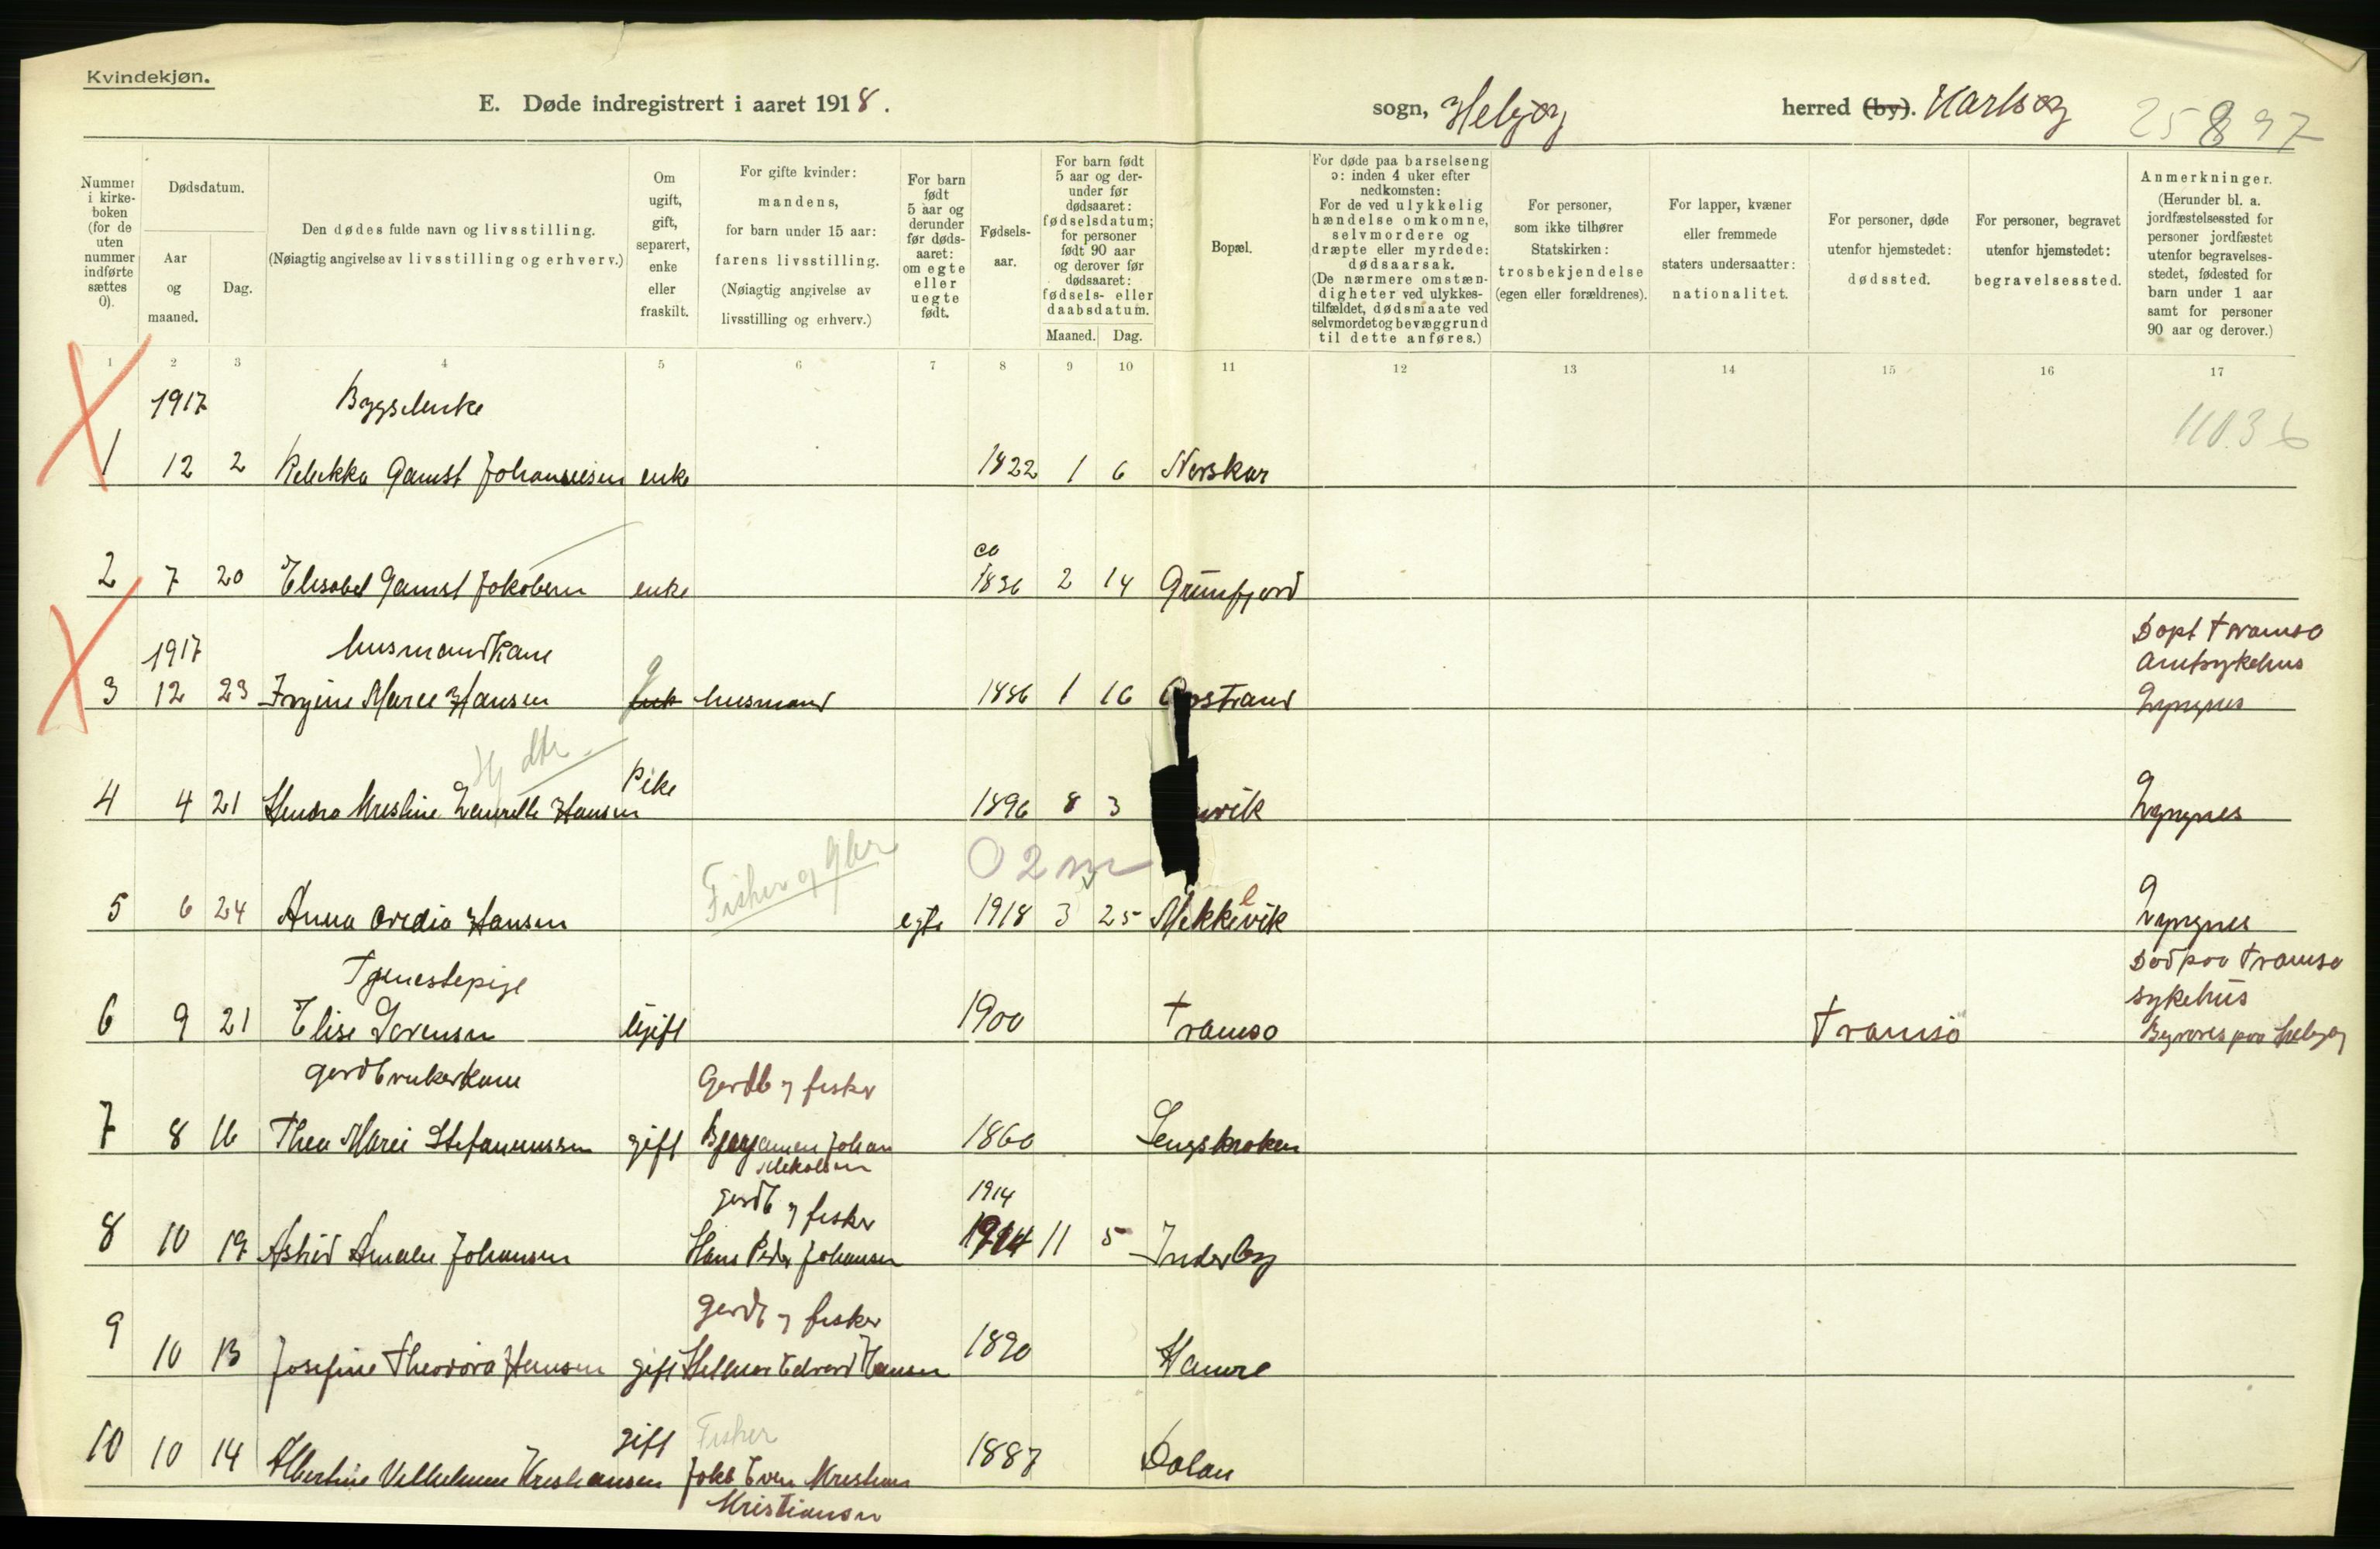 Kvindekjøn.
E. Døde indregistrert i aaret 1918.
sogn, Helgøy
herred (by). Karlsøy
25897
Nummer i kirkeboken (for de uten nummer indførte sættes 0).
Dødsdatum.
Aar og maaned.
Dag.
Den dødes fulde navn og livsstilling.
(Nøiagtig angivelse av livsstilling og erhverv.)
Om ugift, gift, separert, enke eller fraskilt.
For gifte kvinder: mandens, for barn under 15 aar: farens livsstilling. (Nøiagtig angivelse av livsstilling og erhverv.)
For barn født 5 aar og derunder før dødsaaret: om egte eller uegte født.
Fødselsaar.
For barn født 5 aar og derunder før dødsaaret: fødselsdatum; for personer født 90 aar og derover før dødsaaret: fødsels- eller daabsdatum.
Maaned. Dag.
Bopæl.
For døde paa barselseng ɔ: inden 4 uker efter nedkomsten: For de ved ulykkelig hændelse omkomne, selvmordere og dræpte eller myrdede: dødsaarsak. (De nærmere omstændigheter ved ulykkestilfældet, dødsmaate ved selvmordet og bevæggrund til dette anføres.)
For personer, som ikke tilhører Statskirken: trosbekjendelse (egen eller forældrenes).
For lapper, kvæner eller fremmede staters undersaatter: nationalitet.
For personer, døde utenfor hjemstedet: dødssted.
For personer, begravet utenfor hjemstedet: begravelsessted.
Anmerkninger. (Herunder bl. a. jordfæstelsessted for personer jordfæstet utenfor begravelsesstedet, fødested for barn under 1 aar samt for personer 90 aar og derover.)
1 2 3 4 5 6 7 8 9 10 11 12 13 14 15 16 17
1917 Bygselenke 1103 6
1 12 2 Rebekka Gamst Johannesen enke 1822 1 6 Norskar
ca
2 7 20 Elisabet Gamst Jakobsen enke 1836 2 14 Grunfjord
1917 husmandkone Døpt Tromsø
Amtsykehus
3 12 23 Marie Hansen husmand 1886 1 16 Lyngnes
Hj dtr
Pike
4 4 21 Kristine Hansen 1896 8 3 vik Lyngnes
Fisker og Gbr 0 2 m
5 6 24 Anna Ovedia Hansen egte 1918 3 25 Mikkelvik Lyngnes
Tjenestepige Død paa Tromsø
sykehus
6 9 21 Elise Sørensen Ugift 1900 Tromsø Tromsø Begraves paa Helgøy
gardbrukerkone Gardb og fisker
7 8 16 Thea Marie Stefanussen gift Johan 1860 Lengskroken
gardb og fisker 1914
8 10 19 Astrid Amalie Johansen Hans Peder Johansen 1914 11 5 Inderby
gardb og fisker
9 10 13 Josefine Theodora Hansen gift Helmer Edvard Hansen 1890 Hamre
gift Fisker
10 10 14 Albertine Vilhelmine Kristiansen Even Kristian 1887 Dalan
Kristiansen